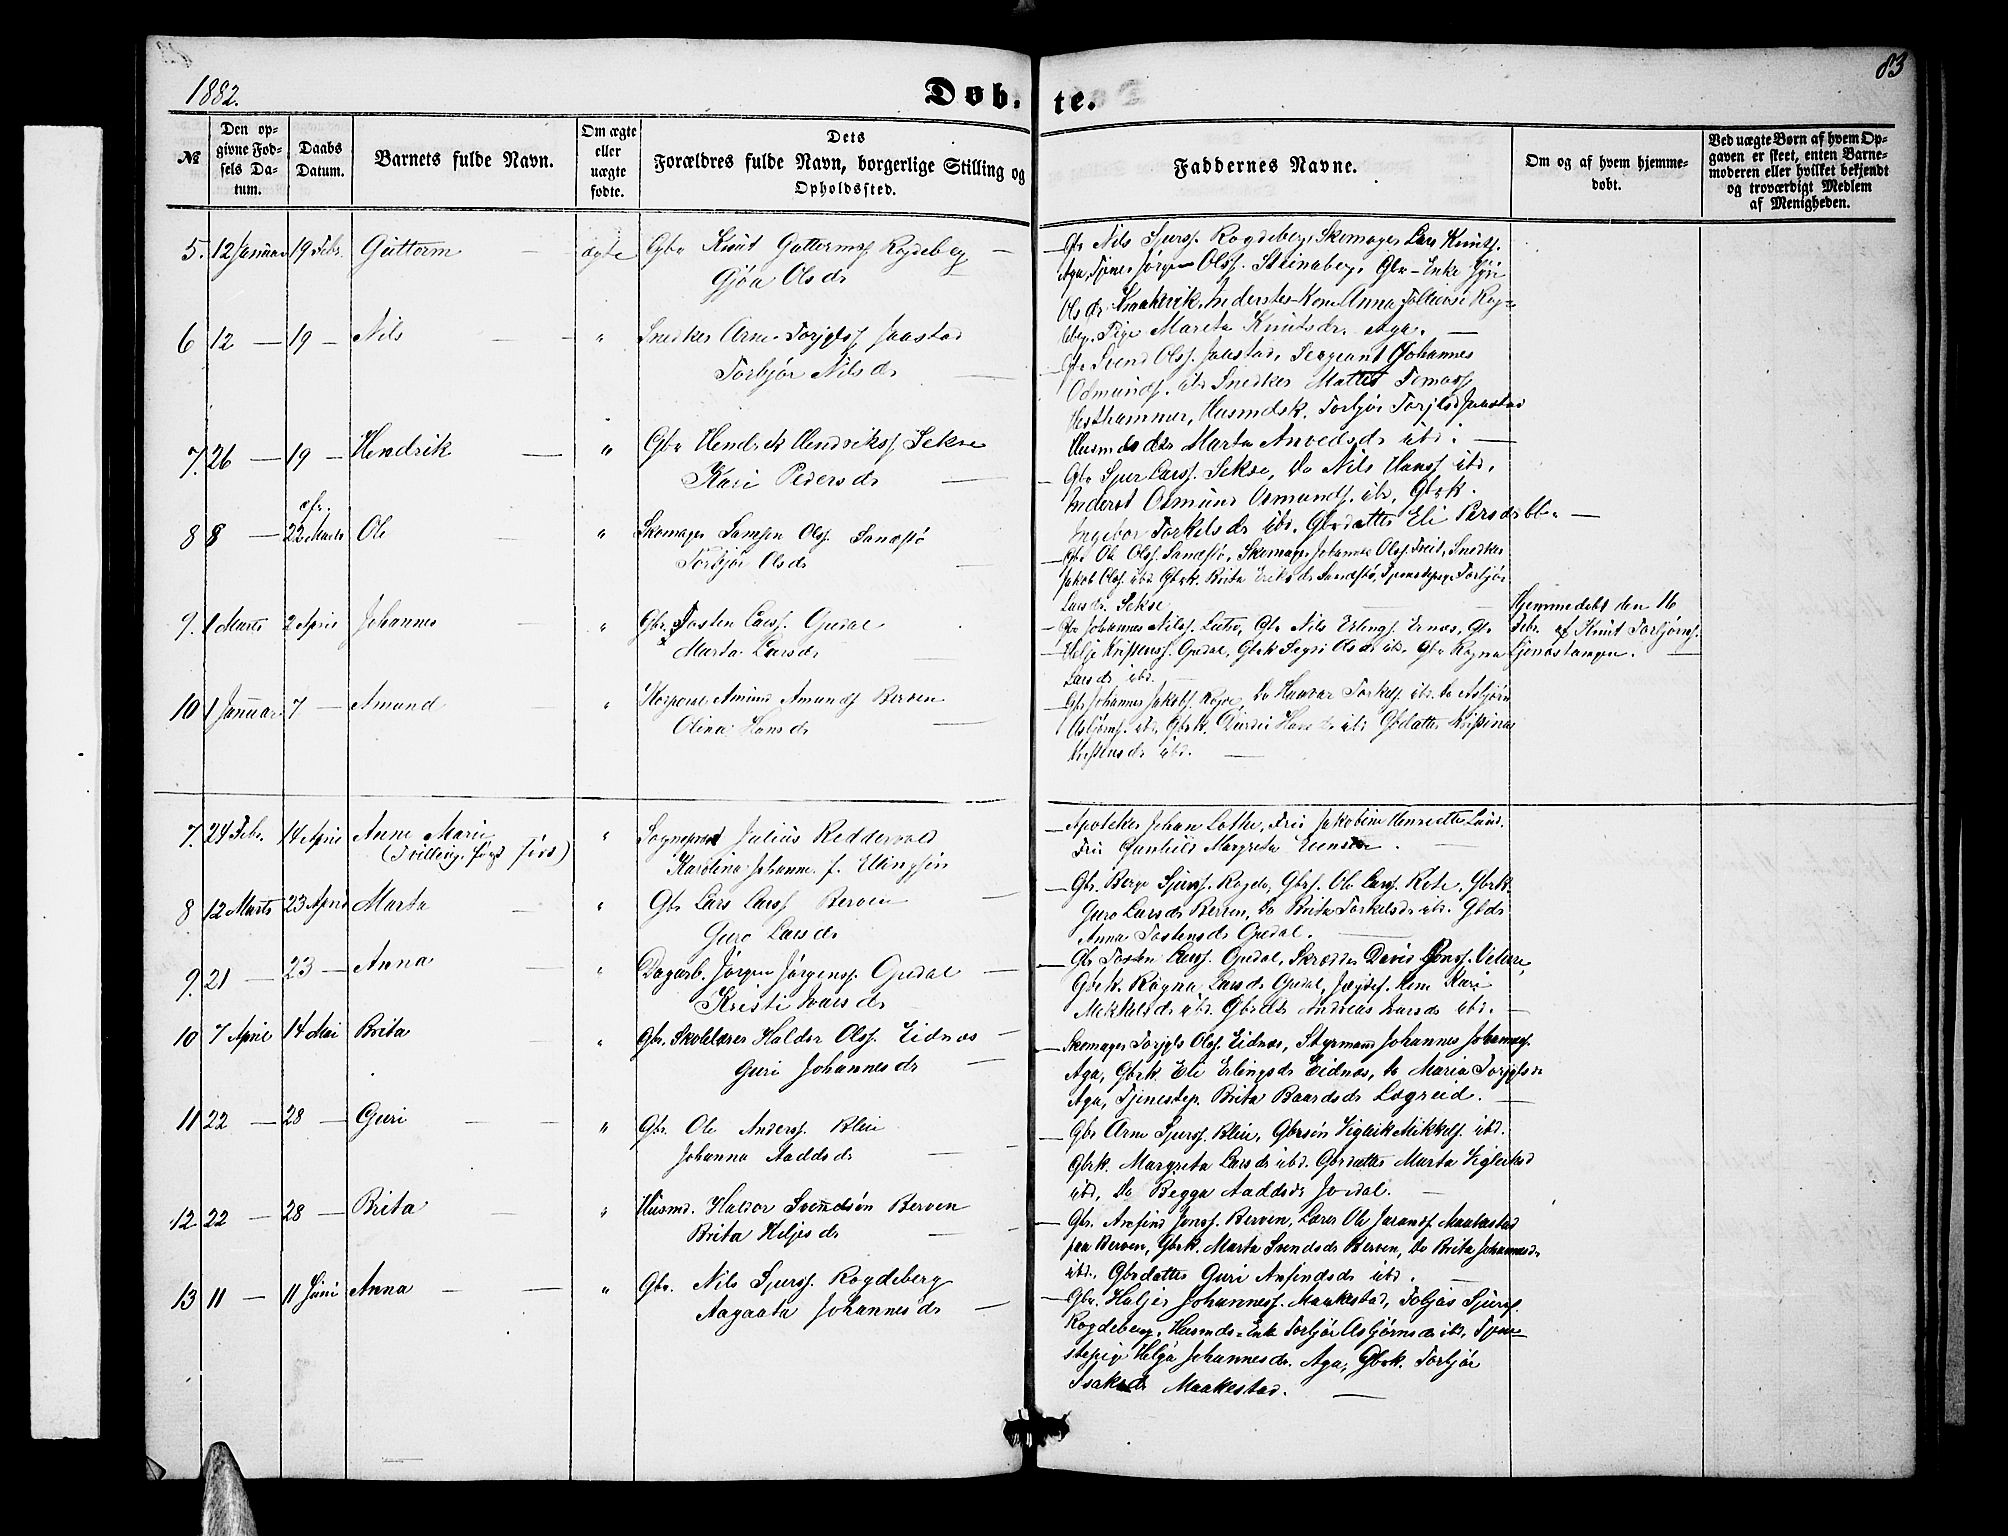 1882.
Døb-
te.
83
№
Den op-
givne Fød-
sels Da-
tum.
Daabs
Datum.
Barnets fulde Navn.
Om ægte
eller
uægte
fødte.
Dets
Forældres fulde Navn, borgerlige Stilling og
Opholdssted.
Faddernes Navne.
Om og af hvem hjemme-
døbt.
Ved uægte Børn af hvem Op-
gaven er skeet, enten Barne-
moderen eller hvilket bekjendt
og troværdigt Medlem
af Menigheden.
5. 12 Januar 19 Febr. Guttorm — ægte Gbr Knut Guttormss Rogdeberg —
Gjøa Olsdr
Gbr Nils Sjurss. Rogdeberg, Skomager Lars Knutss.
Aga, Tjener Jørgen Olss. Steinaberg, Gbr-Enke Gyri
Olsdr. Kraakevik, Inderstes-Kone Anna Rog-
deberg, Pige Marita Knutsdr. Aga. —
6 12 — 19 — Nils — " Snedker Arne Torjylss Jaastad
Torbjør Nilsdr —
Gbr Svend Olss. Jaastad, Sergeant Johannes
Osmunds. ibd Snedker Mattes Tomass
Hesthammer, Husmdsk. Torbjør Torjylsd Jaastad
Husmdsdtr Marta Anvedsdr ibd. —
7. 26 — 19 — Hendrik — " Gbr Hendrik Hendrikss Sekse
Kari Pedersdr —
Gbr Sjur Larss. Sekse, Do Nils Hanss ibd,
Inderst Osmund Osmundss. ibd, Gbrk.
Ingebor Torkelsdr ibd. Gbrdatter Eli Persdr ibd. —
8 8 — cfr. 22 Marts Ole — " Skomager Samson Olss. Sandstø
Torbjør Olsdr —
Gbr Ole Olss. Sandstø, Skomager Johannes Olss. Freit, Snedker
Jakob Olss. ibd Gbrk. Brita Eriksdr Sandstø, Tjenestepige Torbjør
Larsdr. Sekse
9. 1 Marts 2 April Johannes — " Gbr. Tosten Larss. Opedal
Marta Larsdr —
Gbr Johannes Nilss. Lutro, Gbr Nils Erlings. Ernes, Gbr
Helje Kristenss. Opedal, Gbrk Segri Olsdr ibd. Gbr Ragna
Larsdr ibd. —
Hjemmedøbt den 16
Febr. af Knut Torbjørns.
Tjonastangen. —
10 1 Januar 7 — Amund — " Korporal Amund Amundss Berven
Olina Hansdr —
Gbr Johannes Jakobss. Rogde, Do Haavar Torkelss ibd. Do Asbjørn
Asbjørns. ibd, Gbrk. ibd Gbdatter Kristina
ibd. —
7. 24 Febr. 14 April Anne Marie " Sogneprest Julius Reddervold
(Tvilling, først født) Karolina Johanne f. Ellingsen
Apoteker Johan Lothe, Frk Jakobine Henriette Lund.
Frk Gunhild Margreta Evensen. —
8 12 Marts 23 April Marta — " Gbr Lars Larss Berven —
Guro Larsdr
Gbr. Berge Sjurss. Rogde, Gbrs. Ole Larss. Rote, Gbrk.
Guro Larsdr Berven, Do Brita Torkelsdr ibd. Gbdr
Anna Tostensdr Opedal. —
9. 21 — 23 — Anna " Dagarb. Jørgen Jørgenss. Opedal —
Kristi Ivarsdr —
Gbr Tosten Larss. Opedal, Skrædder David Jonss. Velure,
Gbrk. Ragna Larsdr Opedal, Kone Kari
Mikkelsdr ibd. Gbrdtr Andreas Larsdr ibd. —
10 7 April 14 Mai Brita " Gbr. Skolelærer Haldor Olss. Eidnes —
Guri Johannesdr
Skomager Torjyls Olss. Eidnes, Styrmand Johannes Johanness.
Aga, Gbrk. Eli Erlingsdr Eidnes, Do Maria Torjylsdr
Aga, Tjenestep. Brita Baardsdr Lægreid. —
11 22 — 28 — Guri — " Gbr. Ole Anderss. Bleie
Johanna Aaddsdr —
Gbr Arne Sjurss. Bleie, Gbrsøn Viglik Mikkels. ibd.
Gbrk. Margreta Larsdr ibd. Gbrdatter Marta Vigleiksd
ibd, Do Begga Aaddsdr Jordal. —
12 22 — 28 — Brita — " Husmd. Haldor Svendsøn Berven
Brita Heljesdr —
Gbr. Arnfind Jonss. Berven, Lærer Ole Jaranss Maakestad
paa Berven, Gbrk. Marta Svendsdr Berven, Do Brita Johannesdr
ibd. Gbrdatter Guri Anfindsdr ibd. —
13 11 — 11 Juni Anna — — " Gbr. Nils Sjurss. Rogdeberg
Aagaata Johannesdr —
Gbr. Haljer Johanness. Maakestad, Tobjas Sjurss.
Rogdeberg, Husmds-Enke Torbjør Asbjørnsdr ibd. Tjene-
stepig Helga Johannesdr. Aga, Gbrk. Torbjør
Isaksdr Maakestad. —